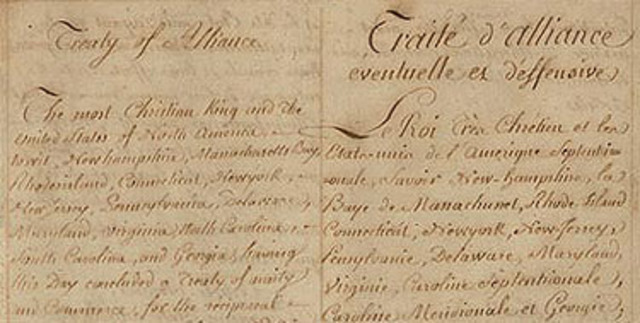 Treaty of Alliance
The most Christian King and the
United States of North America,
to wit, Newhampshire, Massachusetts Bay,
Rhodeisland, Connecticut, Newyork,
New Jersey, Pennsylvania, Delaware,
Maryland, Virginia North Carolina,
South Carolina, and Georgia, having
this Day concluded a Treaty of amity
and Commerce, for the reciprocal
Traité d'alliance
éventuelle et déffensive
Le Roi très Chrétien et les
Etats-unis de l'amerique Septentri-
onale, Savoir New-hampshire, la
Baye de Massachuset, Rhode Island
Connecticut, Newyork, New-Jersey,
Pensylvanie, Delaware, Maryland,
Virginie, Caroline Septentionale,
Caroline Meridionale et Georgie,